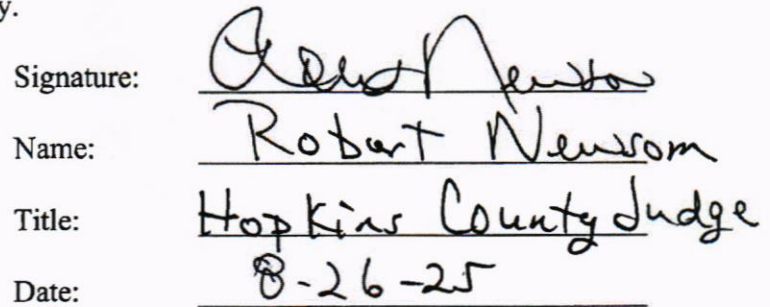 y.
Signature: Robert Newsom
Name: Robert Newsom
Title: Hopkins County Judge
Date: 8-26-25